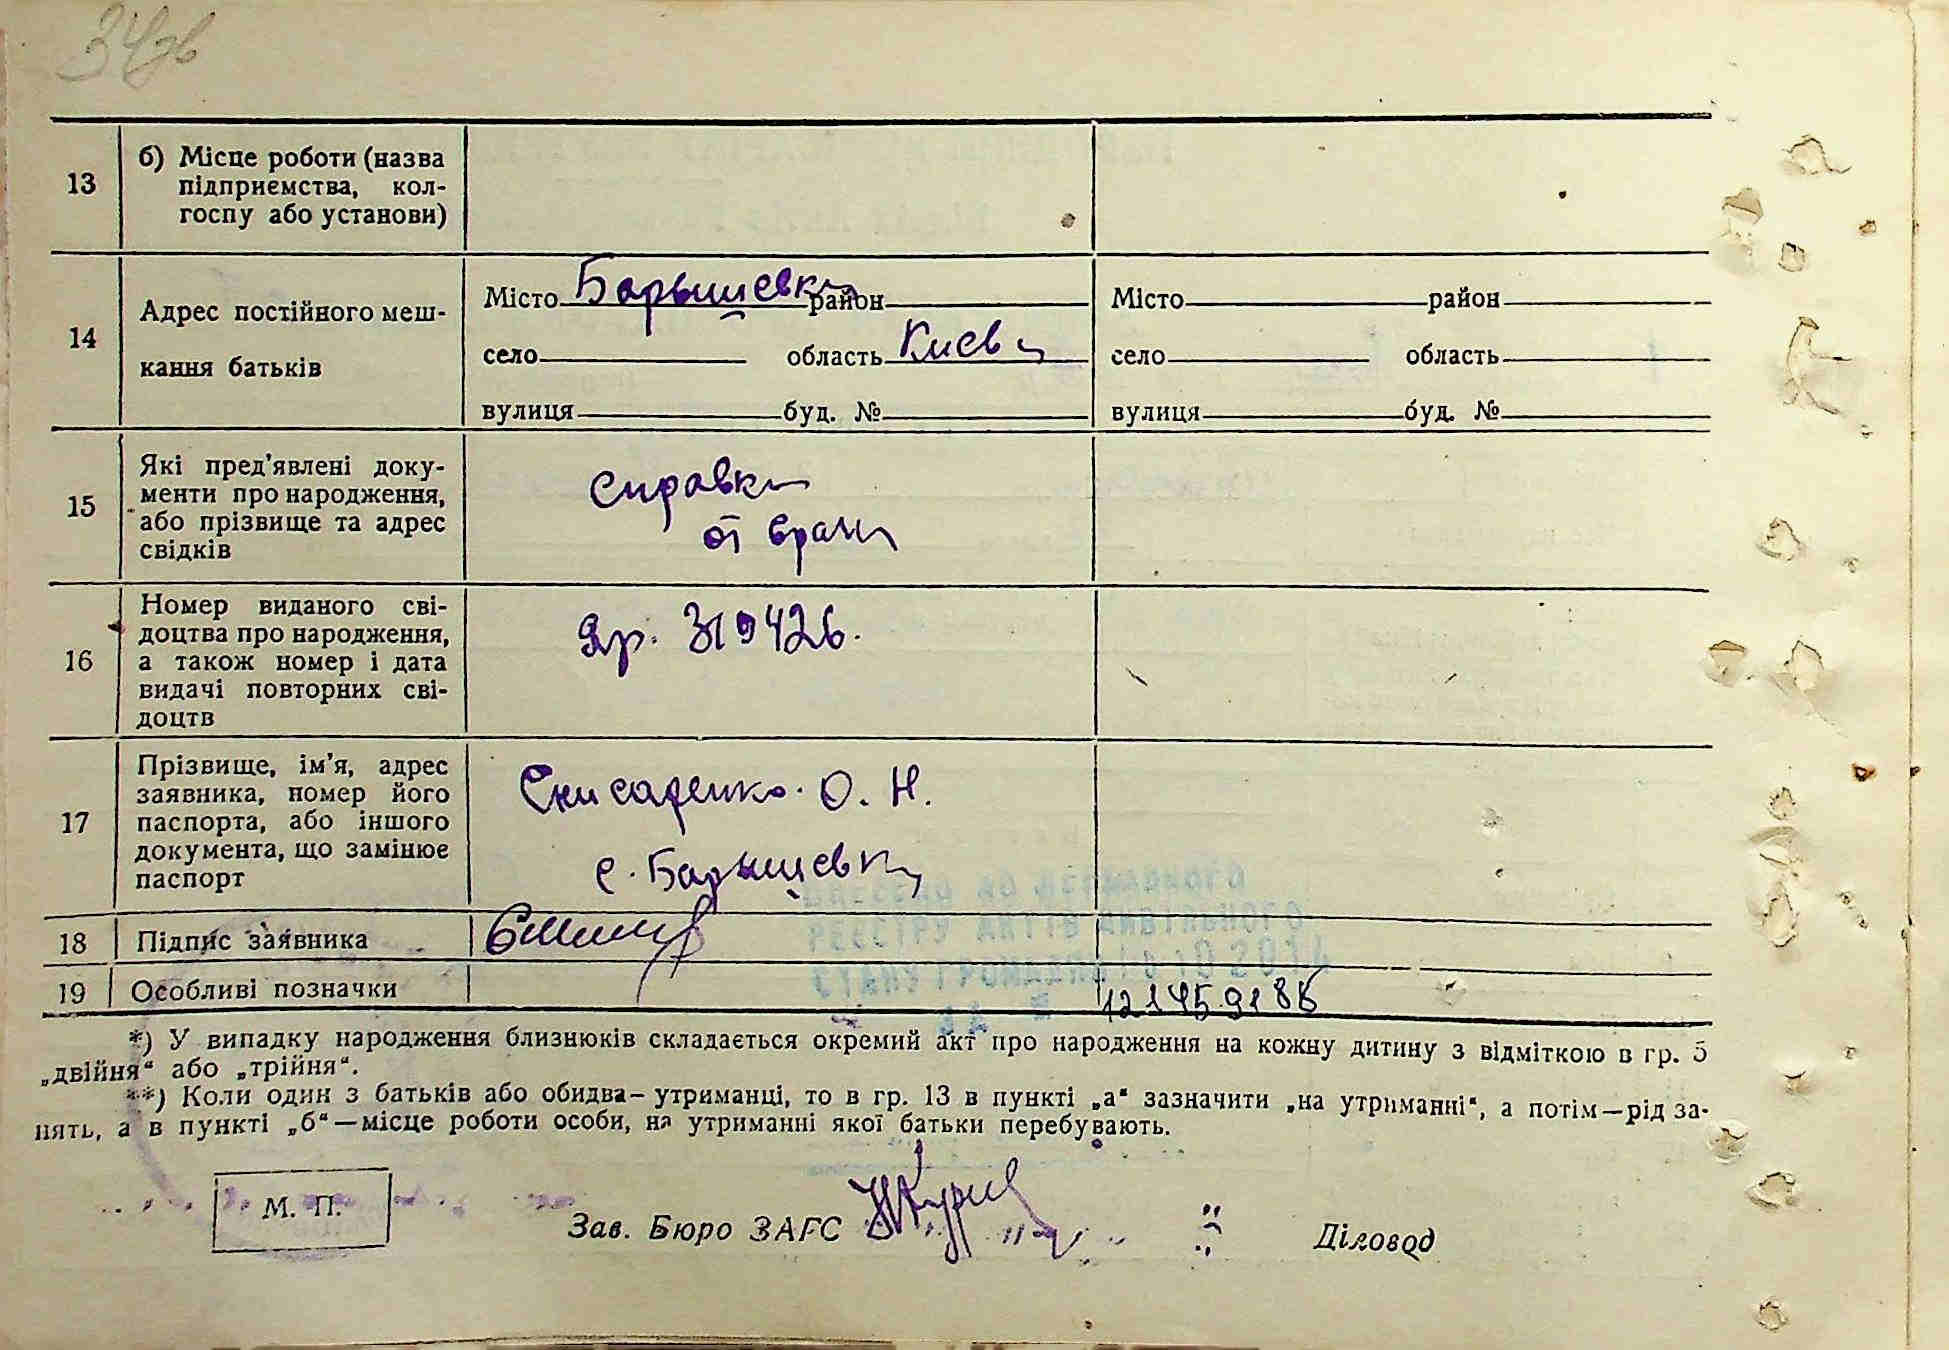 34зв
13
б) Місце роботи (назва
підприємства, кол-
госпу або установи)
14
Адрес постійного меш-
кання батьків
Місто Барышевка район
село область Киев
вулиця буд. №
Місто район
село область
вулиця буд. №
15
Які пред'явлені доку-
менти про народження,
або прізвище та адрес
свідків
справка
от врача
16
Номер виданого сві-
доцтва про народження,
а також номер і дата
видачі повторних сві-
доцтв
319426.
17
Прізвище, ім'я, адрес
заявника, номер його
паспорта, або іншого
документа, що замінює
паспорт
О. Н.
с. Барышевка
ВНЕСЕНО ДО ДЕРЖАВНОГО
РЕЄСТРУ АКТІВ ЦИВІЛЬНОГО
СТАНУ ГРОМАДЯН
18
Підпис заявника
19
Особливі позначки
*) У випадку народження близнюків складається окремий акт про народження на кожну дитину з відміткою в гр. 5
„двійня“ або „трійня“.
**) Коли один з батьків або обидва—утриманці, то в гр. 13 в пункті „а“ зазначити „на утриманні“, а потім—рід за-
нять, а в пункті „б“—місце роботи особи, на утриманні якої батьки перебувають.
М. П.
Зав. Бюро ЗАГС
Діловод